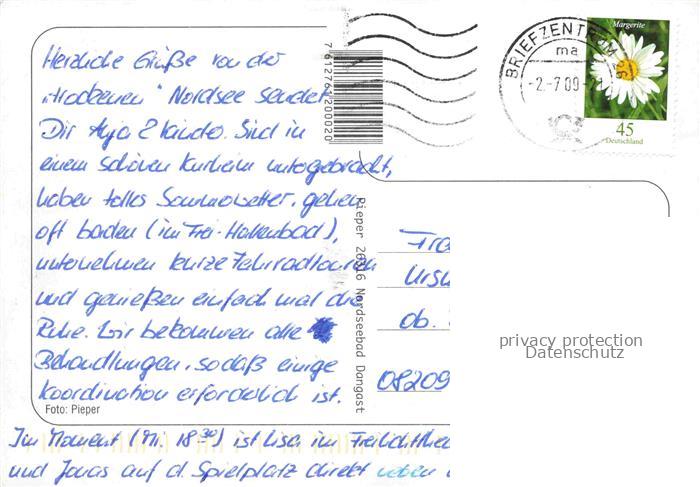 Herzliche Grüße von der
„trockenen" Nordsee sendet
Dir Anja & Kinder. Sind in
einem schönen Kurheim untergebracht,
haben tolles Sommerwetter, gehen
oft baden (im Frei-Hallenbad),
unternehmen kurze Fahrradtouren
und genießen einfach mal die
Ruhe. Wir bekommen alle
Behandlungen, sodaß einige
Koordination erforderlich ist.
Foto: Pieper
Im Moment (Mi. 18 30) ist Lisa im Freilichtthe
und Jonas auf d. Spielplatz direkt neben
7612761200020
Pieper 26316 Nordseebad Dangast
BRIEFZENTRUM
ma
-2.-7.09-
Margerite
45
Deutschland
Fra
Ursu
Ob.
08209
privacy protection
Datenschutz